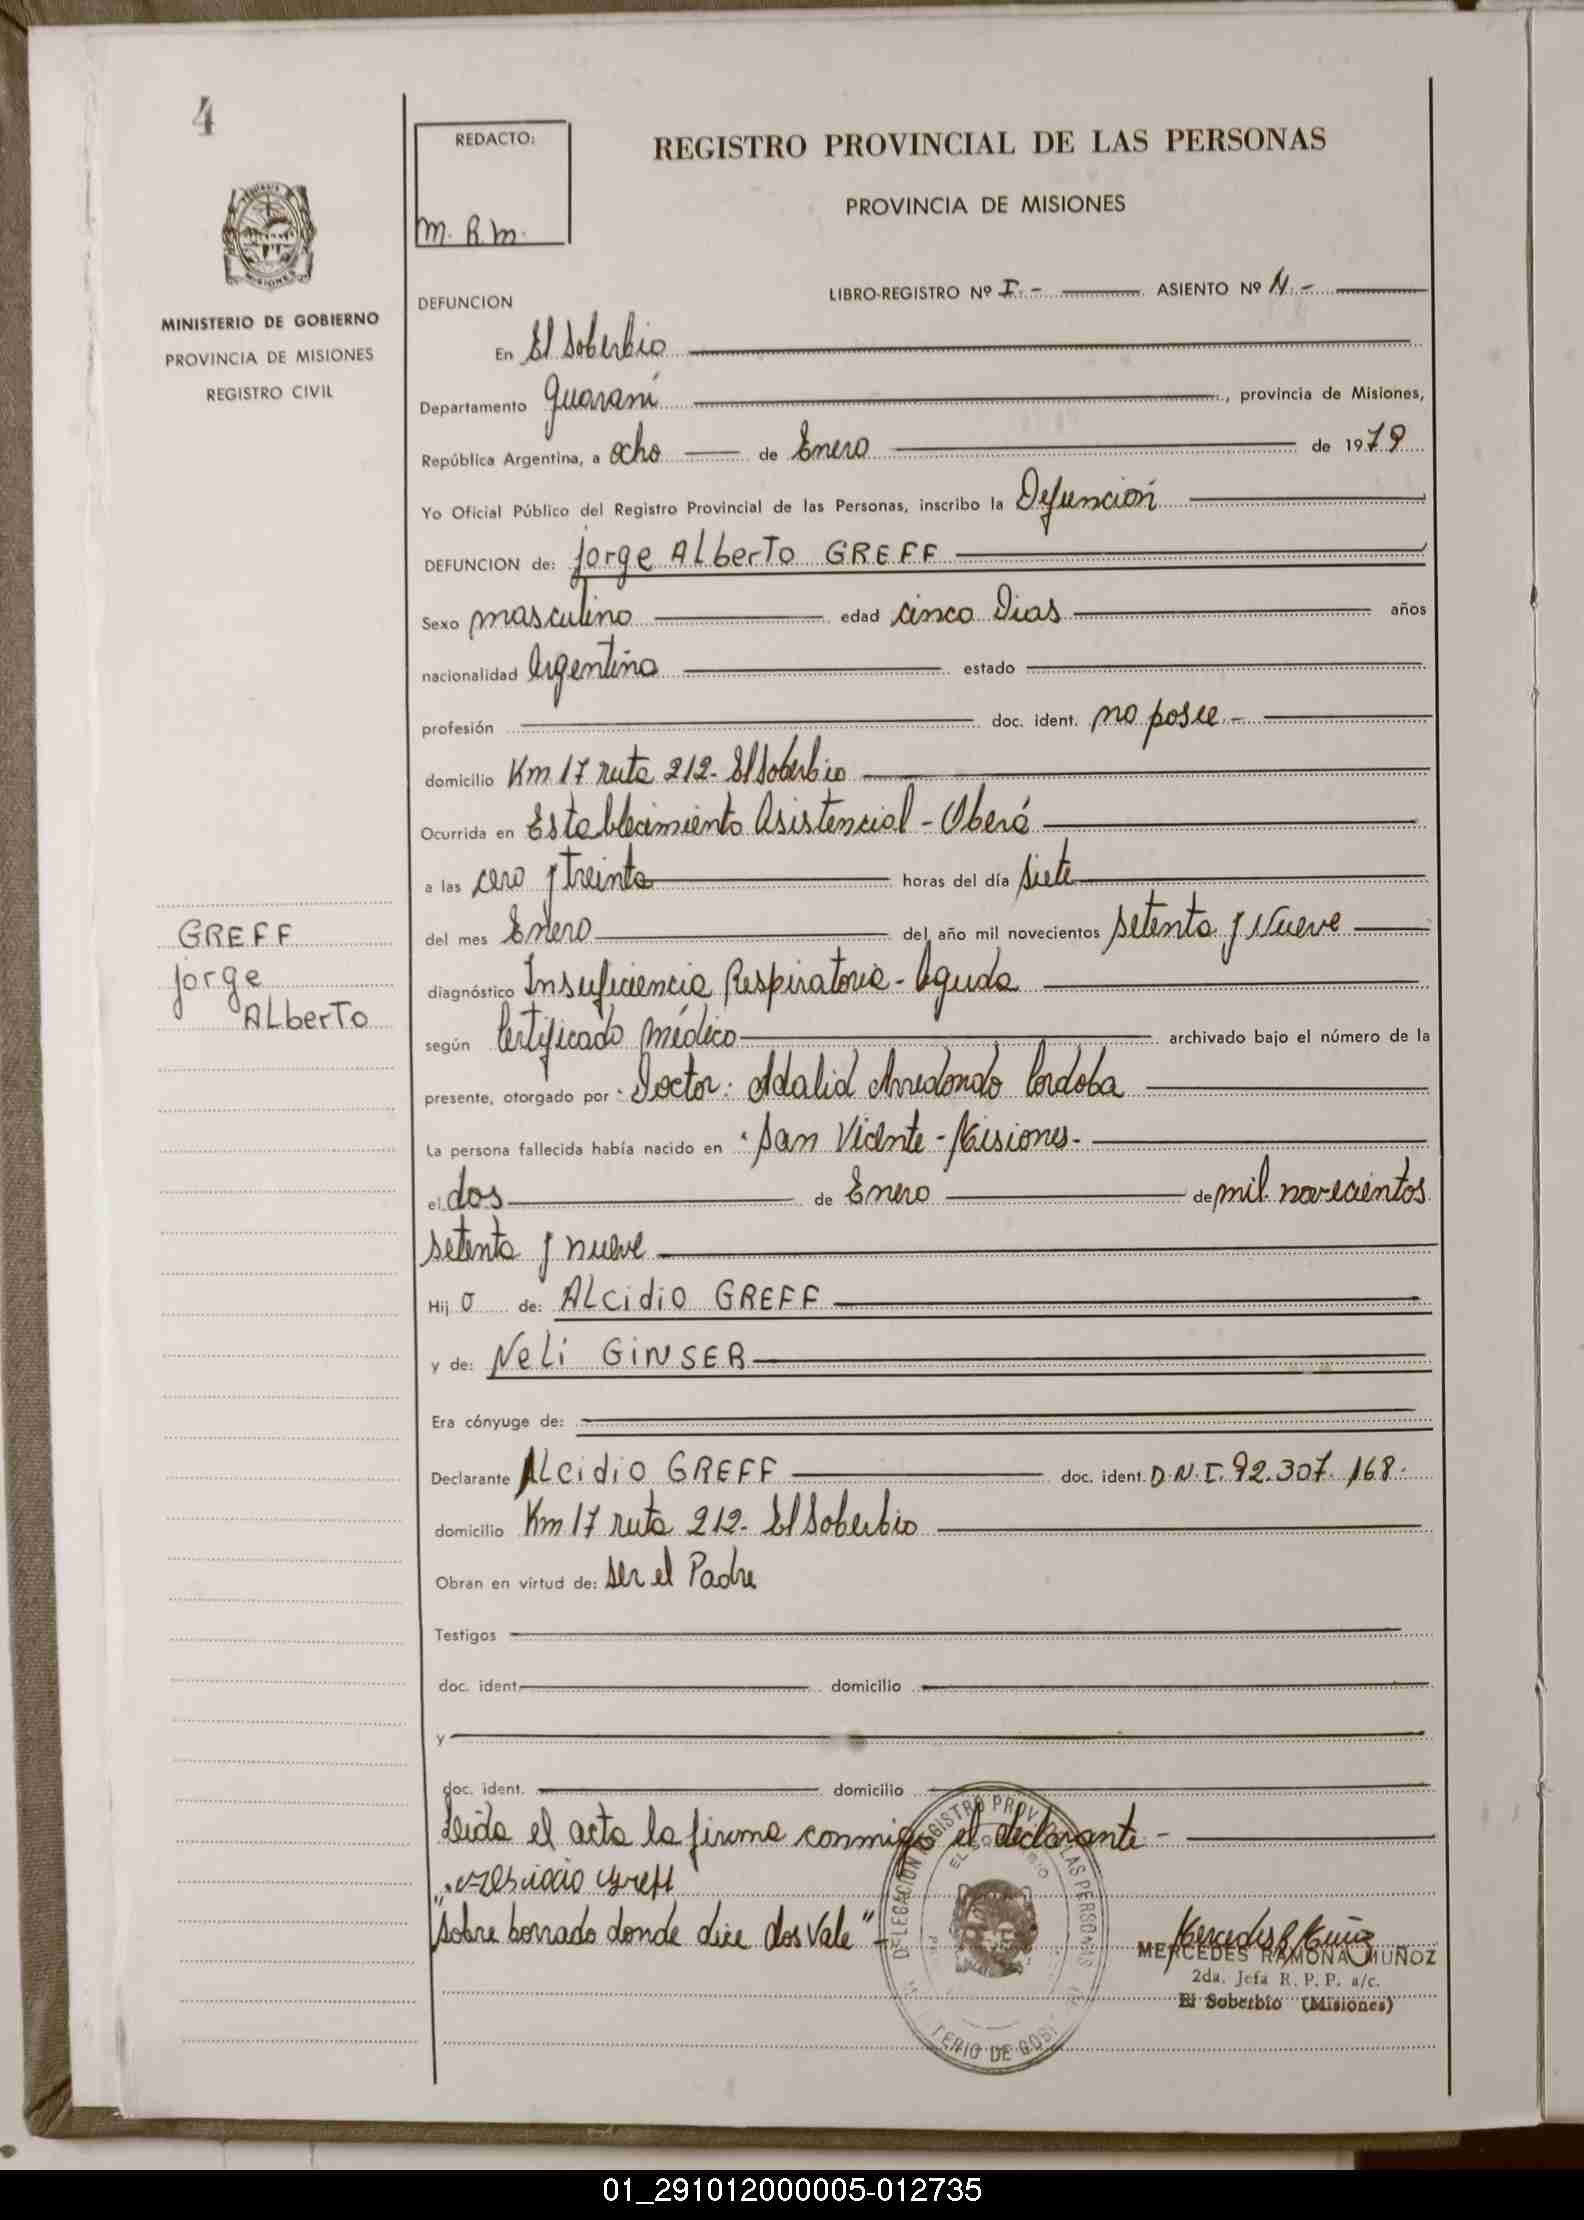 4
REDACTO:
M. R. M.
REGISTRO PROVINCIAL DE LAS PERSONAS
PROVINCIA DE MISIONES
MISIONES
MINISTERIO DE GOBIERNO
PROVINCIA DE MISIONES
REGISTRO CIVIL
LIBRO-REGISTRO Nº I.- ASIENTO Nº 4.-
DEFUNCION
En El Soberbio
Departamento Guaraní, provincia de Misiones,
República Argentina, a ocho de Enero de 1979
Yo Oficial Público del Registro Provincial de las Personas, inscribo la Defunción
DEFUNCION de: Jorge ALberTo GREFF
Sexo masculino edad cinco Dias años
nacionalidad Argentina estado
profesión doc. ident. no posee.-
domicilio Km 17 ruta 212- El Soberbio
Ocurrida en Establecimiento Asistencial - Oberá
a las cero y treinta horas del día siete
del mes Enero del año mil novecientos setenta y Nueve
GREFF
Jorge
ALberTo
diagnóstico Insuficiencia Respiratoria - Aguda
según Certificado Médico archivado bajo el número de la
presente, otorgado por Doctor: Adalid Arredondo Cordoba
La persona fallecida había nacido en San Vicente - Misiones-
el dos de Enero de mil novecientos
setenta y nueve
Hij o de: ALcidio GREFF
y de: NeLi GiNSER
Era cónyuge de:
Declarante ALcidio GREFF doc. ident. D.N.I. 92.307.168.
domicilio Km 17 ruta 212- El Soberbio
Obran en virtud de: ser el Padre
Testigos
doc. ident. domicilio
y
doc. ident. domicilio
Leida el acta la firma conmigo el declarante -
Greff
"Sobre borrado donde dice dos Vale" -
DELEGACION REGISTRO PROV LAS PERSONAS
EL SOBERBIO
TERIO DE GOBI
Mercedes R Muñoz
MERCEDES RAMONA MUÑOZ
2da. Jefa R. P. P. a/c.
El Soberbio (Misiones)
01_291012000005-012735